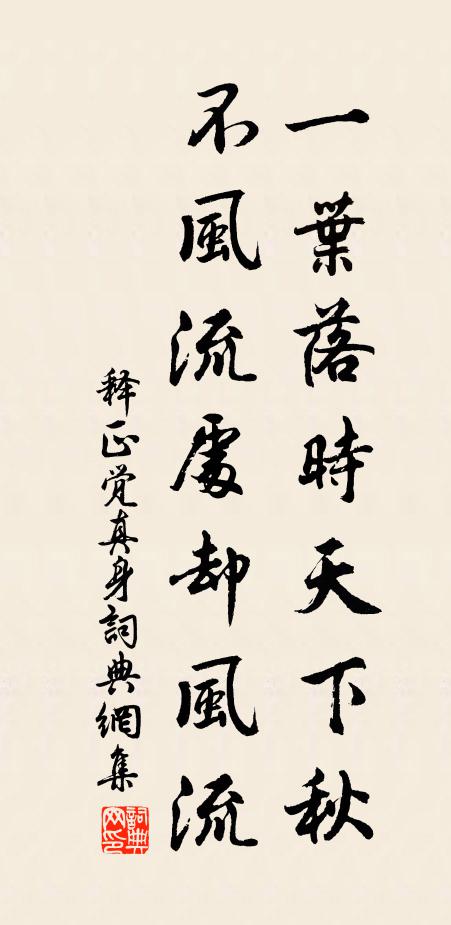 一葉落時天下秋
不風流處却風流
释正觉真身詞典網集
詞典
网印